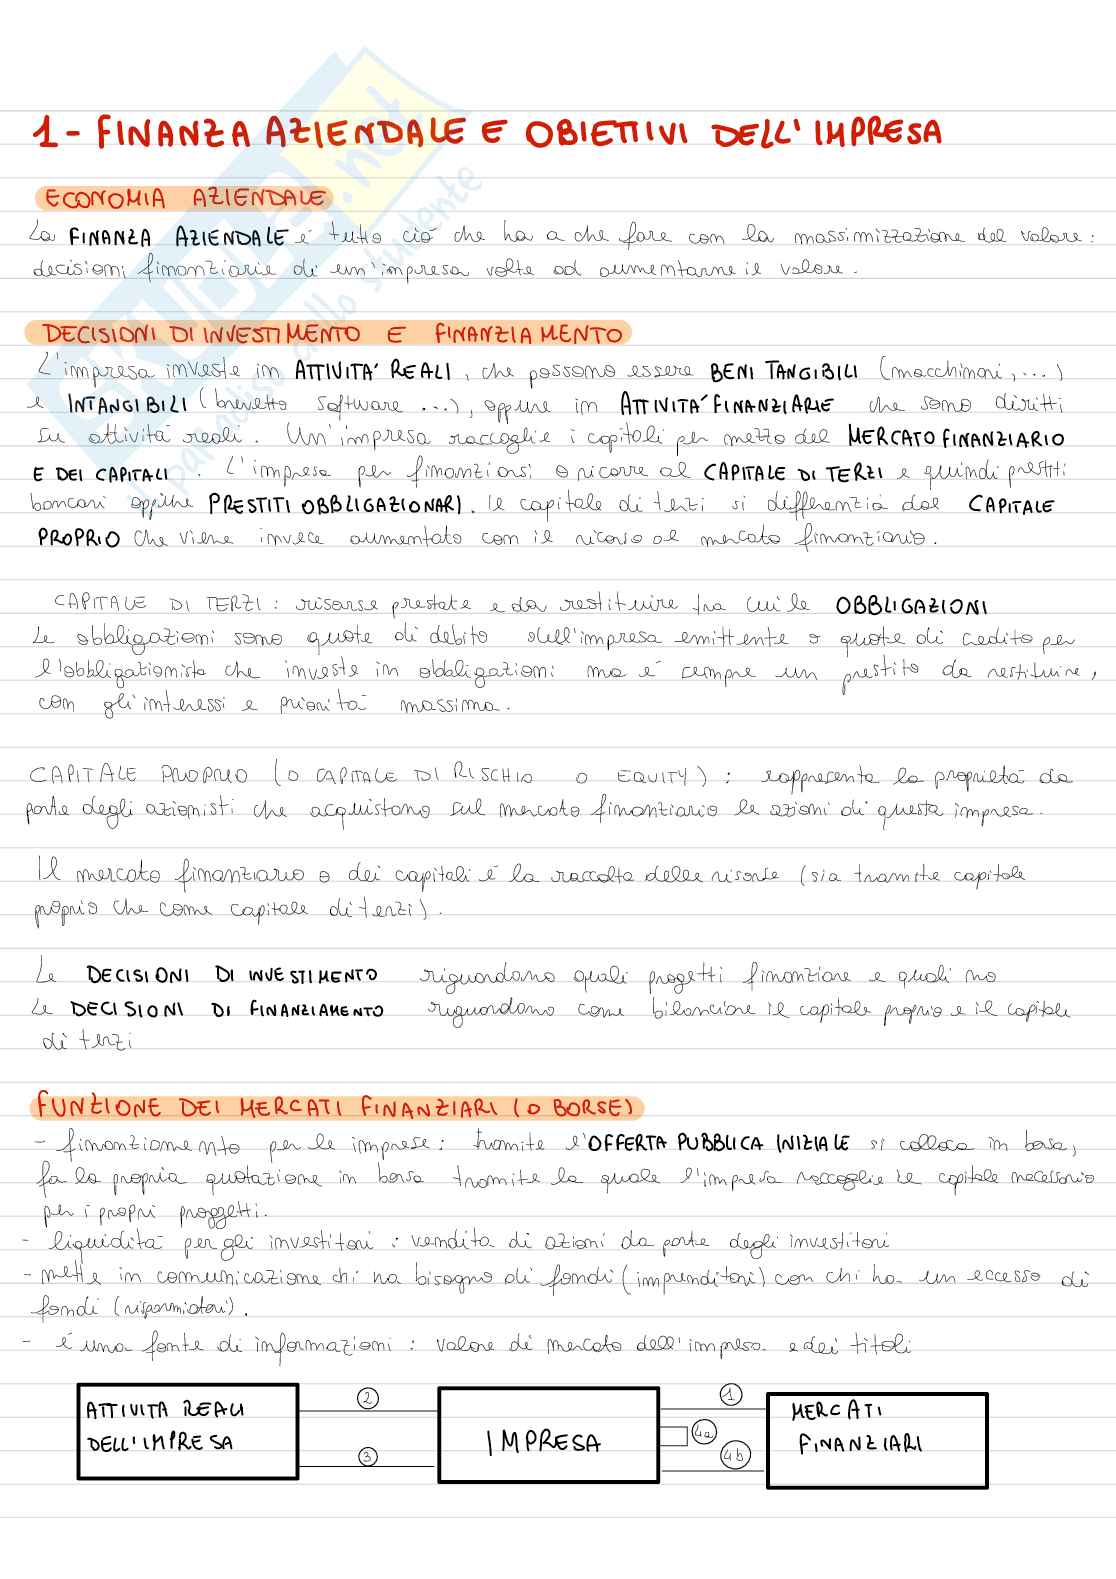 1 - FINANZA AZIENDALE E OBIETTIVI DELL'IMPRESA
ECONOMIA AZIENDALE
La FINANZA AZIENDALE é tutto ciò che ha a che fare con la massimizzazione del valore:
decisioni finanziarie di un'impresa volte ad aumentarne il valore.
DECISIONI DI INVESTIMENTO E FINANZIAMENTO
L'impresa investe in ATTIVITA' REALI, che possono essere BENI TANGIBILI (macchinari, ...)
e INTANGIBILI (brevetto software ...), oppure in ATTIVITA' FINANZIARIE che sono diritti
su attività reali. Un'impresa raccoglie i capitali per mezzo del MERCATO FINANZIARIO
E DEI CAPITALI. L'impresa per finanziarsi o ricorre al CAPITALE DI TERZI e quindi prestiti
bancari oppure PRESTITI OBBLIGAZIONARI. Il capitale di terzi si differenzia dal CAPITALE
PROPRIO che viene invece aumentato con il ricorso al mercato finanziario.
CAPITALE DI TERZI: risorse prestate e da restituire fra cui le OBBLIGAZIONI
Le obbligazioni sono quote di debito dell'impresa emittente o quote di credito per
l'obbligazionista che investe in obbligazioni ma é sempre un prestito da restituire,
con gli interessi e priorità massima.
CAPITALE PROPRIO (O CAPITALE DI RISCHIO O EQUITY): rappresenta la proprietà da
parte degli azionisti che acquistano sul mercato finanziario le azioni di questa impresa.
Il mercato finanziario o dei capitali é la raccolta delle risorse (sia tramite capitale
proprio che come capitale di terzi).
Le DECISIONI DI INVESTIMENTO riguardano quali progetti finanziare e quali no
Le DECISIONI DI FINANZIAMENTO riguardano come bilanciare il capitale proprio e il capitale
di terzi
FUNZIONE DEI MERCATI FINANZIARI (O BORSE)
- finanziamento per le imprese: tramite l'OFFERTA PUBBLICA INIZIALE si colloca in borsa,
fa la propria quotazione in borsa tramite la quale l'impresa raccoglie il capitale necessario
per i propri proggetti.
- liquidità per gli investitori: vendita di azioni da parte degli investitori
- mette in comunicazione chi ha bisogno di fondi (imprenditori) con chi ha un eccesso di
fondi (risparmiatori).
- é una fonte di informazioni: valore di mercato dell'impresa e dei titoli
ATTIVITA REALI
DELL'IMPRESA
2
3
IMPRESA
1
4a
4b
MERCATI
FINANZIARI
SKUOLA.net
il paradiso dello studente